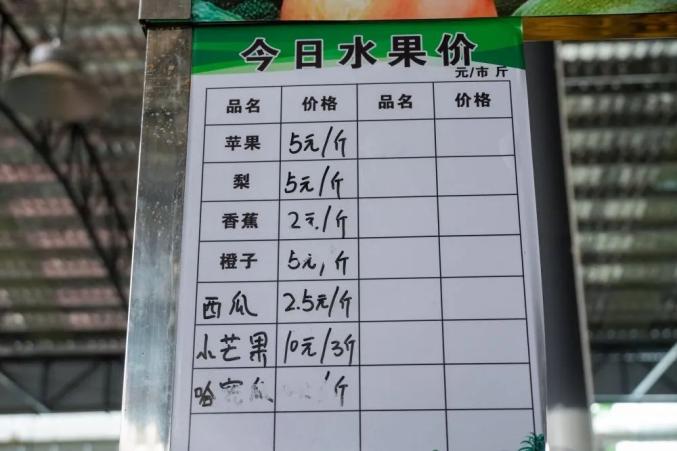 今日水果价
元/市斤
品名 价格 品名 价格
苹果 5元/斤
梨 5元/斤
香蕉 2元/斤
橙子 5元/斤
西瓜 2.5元/斤
小芒果 10元/3斤
哈密瓜 斤